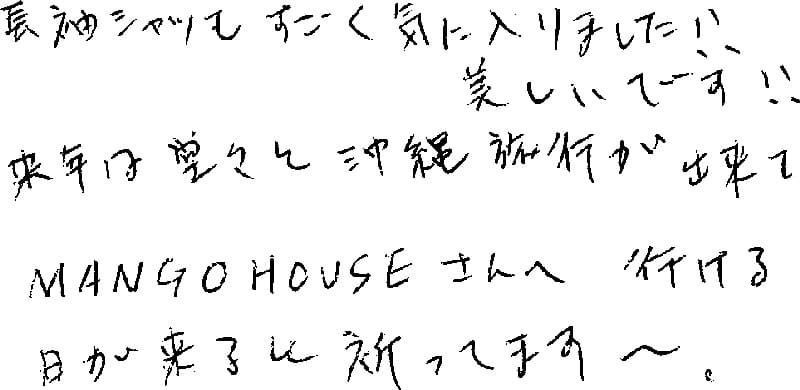 長袖シャツもすごく気に入りました!!
美しいです!!
来年は堂々と沖縄旅行が出来て
MANGO HOUSEさんへ 行ける
日が来ると祈ってます〜。